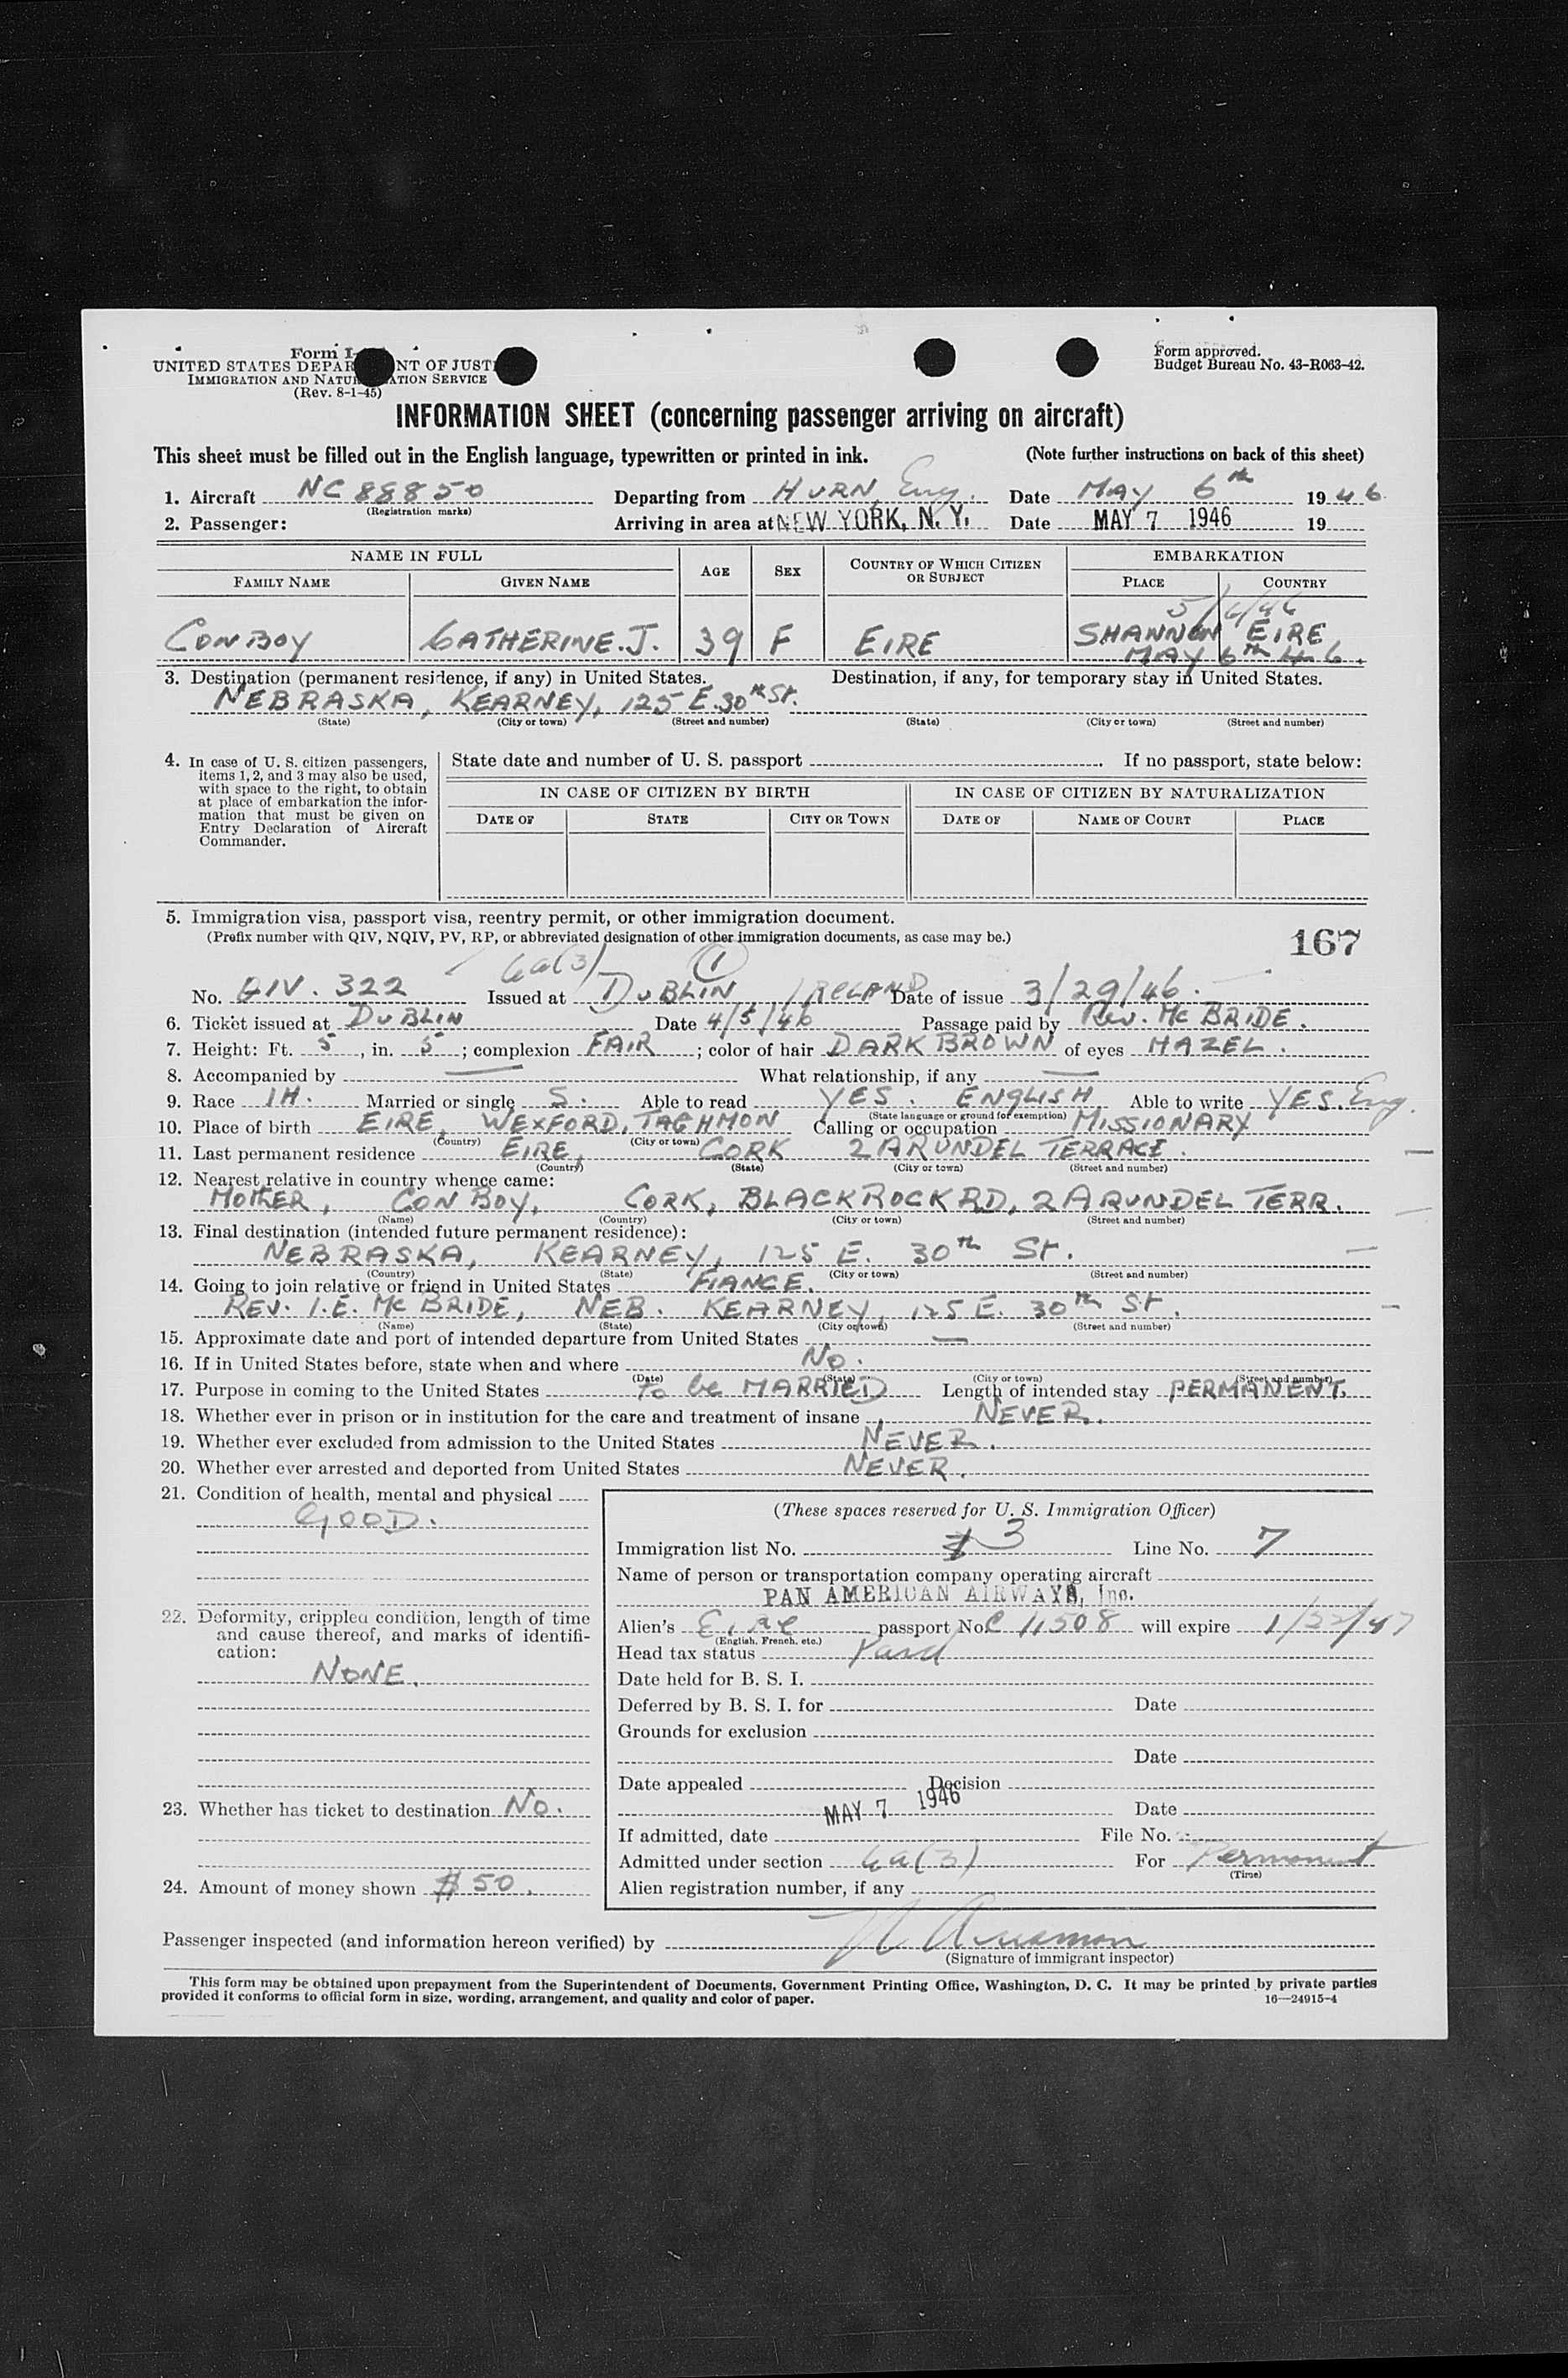 Form I-
UNITED STATES DEPAR NT OF JUST
IMMIGRATION AND NATU ATION SERVICE
(Rev. 8-1-45)
Form approved.
Budget Bureau No. 43-R063-42.
INFORMATION SHEET (concerning passenger arriving on aircraft)
This sheet must be filled out in the English language, typewritten or printed in ink. (Note further instructions on back of this sheet)
1. Aircraft NC 88850 Departing from HURN, Eng. Date MAY 6th 1946
(Registration marks)
2. Passenger: Arriving in area at NEW YORK, N. Y. Date MAY 7 1946 19
NAME IN FULL AGE SEX COUNTRY OF WHICH CITIZEN OR SUBJECT EMBARKATION
FAMILY NAME GIVEN NAME PLACE COUNTRY
5/6/46
CONBOY CATHERINE.J. 39 F EIRE SHANNON EIRE
MAY 6th 46.
3. Destination (permanent residence, if any) in United States. Destination, if any, for temporary stay in United States.
NEBRASKA, KEARNEY, 125 E.30th St.
(State) (City or town) (Street and number) (State) (City or town) (Street and number)
4. In case of U. S. citizen passengers, items 1, 2, and 3 may also be used, with space to the right, to obtain at place of embarkation the information that must be given on Entry Declaration of Aircraft Commander.
State date and number of U. S. passport If no passport, state below:
IN CASE OF CITIZEN BY BIRTH IN CASE OF CITIZEN BY NATURALIZATION
DATE OF STATE CITY OR TOWN DATE OF NAME OF COURT PLACE
5. Immigration visa, passport visa, reentry permit, or other immigration document.
(Prefix number with QIV, NQIV, PV, RP, or abbreviated designation of other immigration documents, as case may be.)
167
6a(3) 1
No. QIV. 322 Issued at DUBLIN IRELAND Date of issue 3/29/46.
6. Ticket issued at DUBLIN Date 4/5/46 Passage paid by Rev. Mc BRIDE.
7. Height: Ft. 5, in. 5; complexion FAIR; color of hair DARK BROWN of eyes HAZEL.
8. Accompanied by — What relationship, if any —
9. Race IH. Married or single S. Able to read YES. ENGLISH Able to write YES. Eng.
(State language or ground for exemption)
10. Place of birth EIRE, WEXFORD, TAGHMON Calling or occupation MISSIONARY
(Country) (City or town)
11. Last permanent residence EIRE, CORK 2 ARUNDEL TERRACE.
(Country) (State) (City or town) (Street and number)
12. Nearest relative in country whence came:
MOTHER, CONBOY, CORK, BLACKROCK RD, 2 ARUNDEL TERR.
(Name) (Country) (City or town) (Street and number)
13. Final destination (intended future permanent residence):
NEBRASKA, KEARNEY, 125 E. 30th St.
(Country) (State) (City or town) (Street and number)
14. Going to join relative or friend in United States FIANCE.
REV. I.E. Mc BRIDE, NEB. KEARNEY, 125 E. 30th St.
(Name) (State) (City or town) (Street and number)
15. Approximate date and port of intended departure from United States —
16. If in United States before, state when and where No.
(Date) (State) (City or town) (Street and number)
17. Purpose in coming to the United States To be MARRIED Length of intended stay PERMANENT.
18. Whether ever in prison or in institution for the care and treatment of insane NEVER.
19. Whether ever excluded from admission to the United States NEVER.
20. Whether ever arrested and deported from United States NEVER.
21. Condition of health, mental and physical
GOOD.
22. Deformity, crippled condition, length of time and cause thereof, and marks of identification:
NONE.
23. Whether has ticket to destination No.
24. Amount of money shown $50.
(These spaces reserved for U. S. Immigration Officer)
Immigration list No. 3 Line No. 7
Name of person or transportation company operating aircraft
PAN AMERICAN AIRWAYS, Inc.
Alien's Eire passport No. C 11508 will expire 1/22/47
(English, French, etc.)
Head tax status Paid
Date held for B. S. I.
Deferred by B. S. I. for Date
Grounds for exclusion
Date
Date appealed Decision
MAY 7 1946 Date
If admitted, date File No.
Admitted under section 6a(3) For Permanent
(Time)
Alien registration number, if any
Passenger inspected (and information hereon verified) by
(Signature of immigrant inspector)
This form may be obtained upon prepayment from the Superintendent of Documents, Government Printing Office, Washington, D. C. It may be printed by private parties
provided it conforms to official form in size, wording, arrangement, and quality and color of paper. 16—24915-4